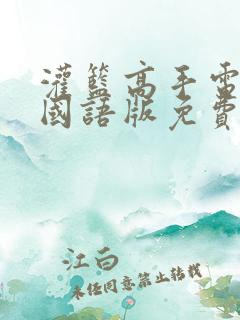 灌籃高手電
國語版免費
江白
未经同意禁止转载